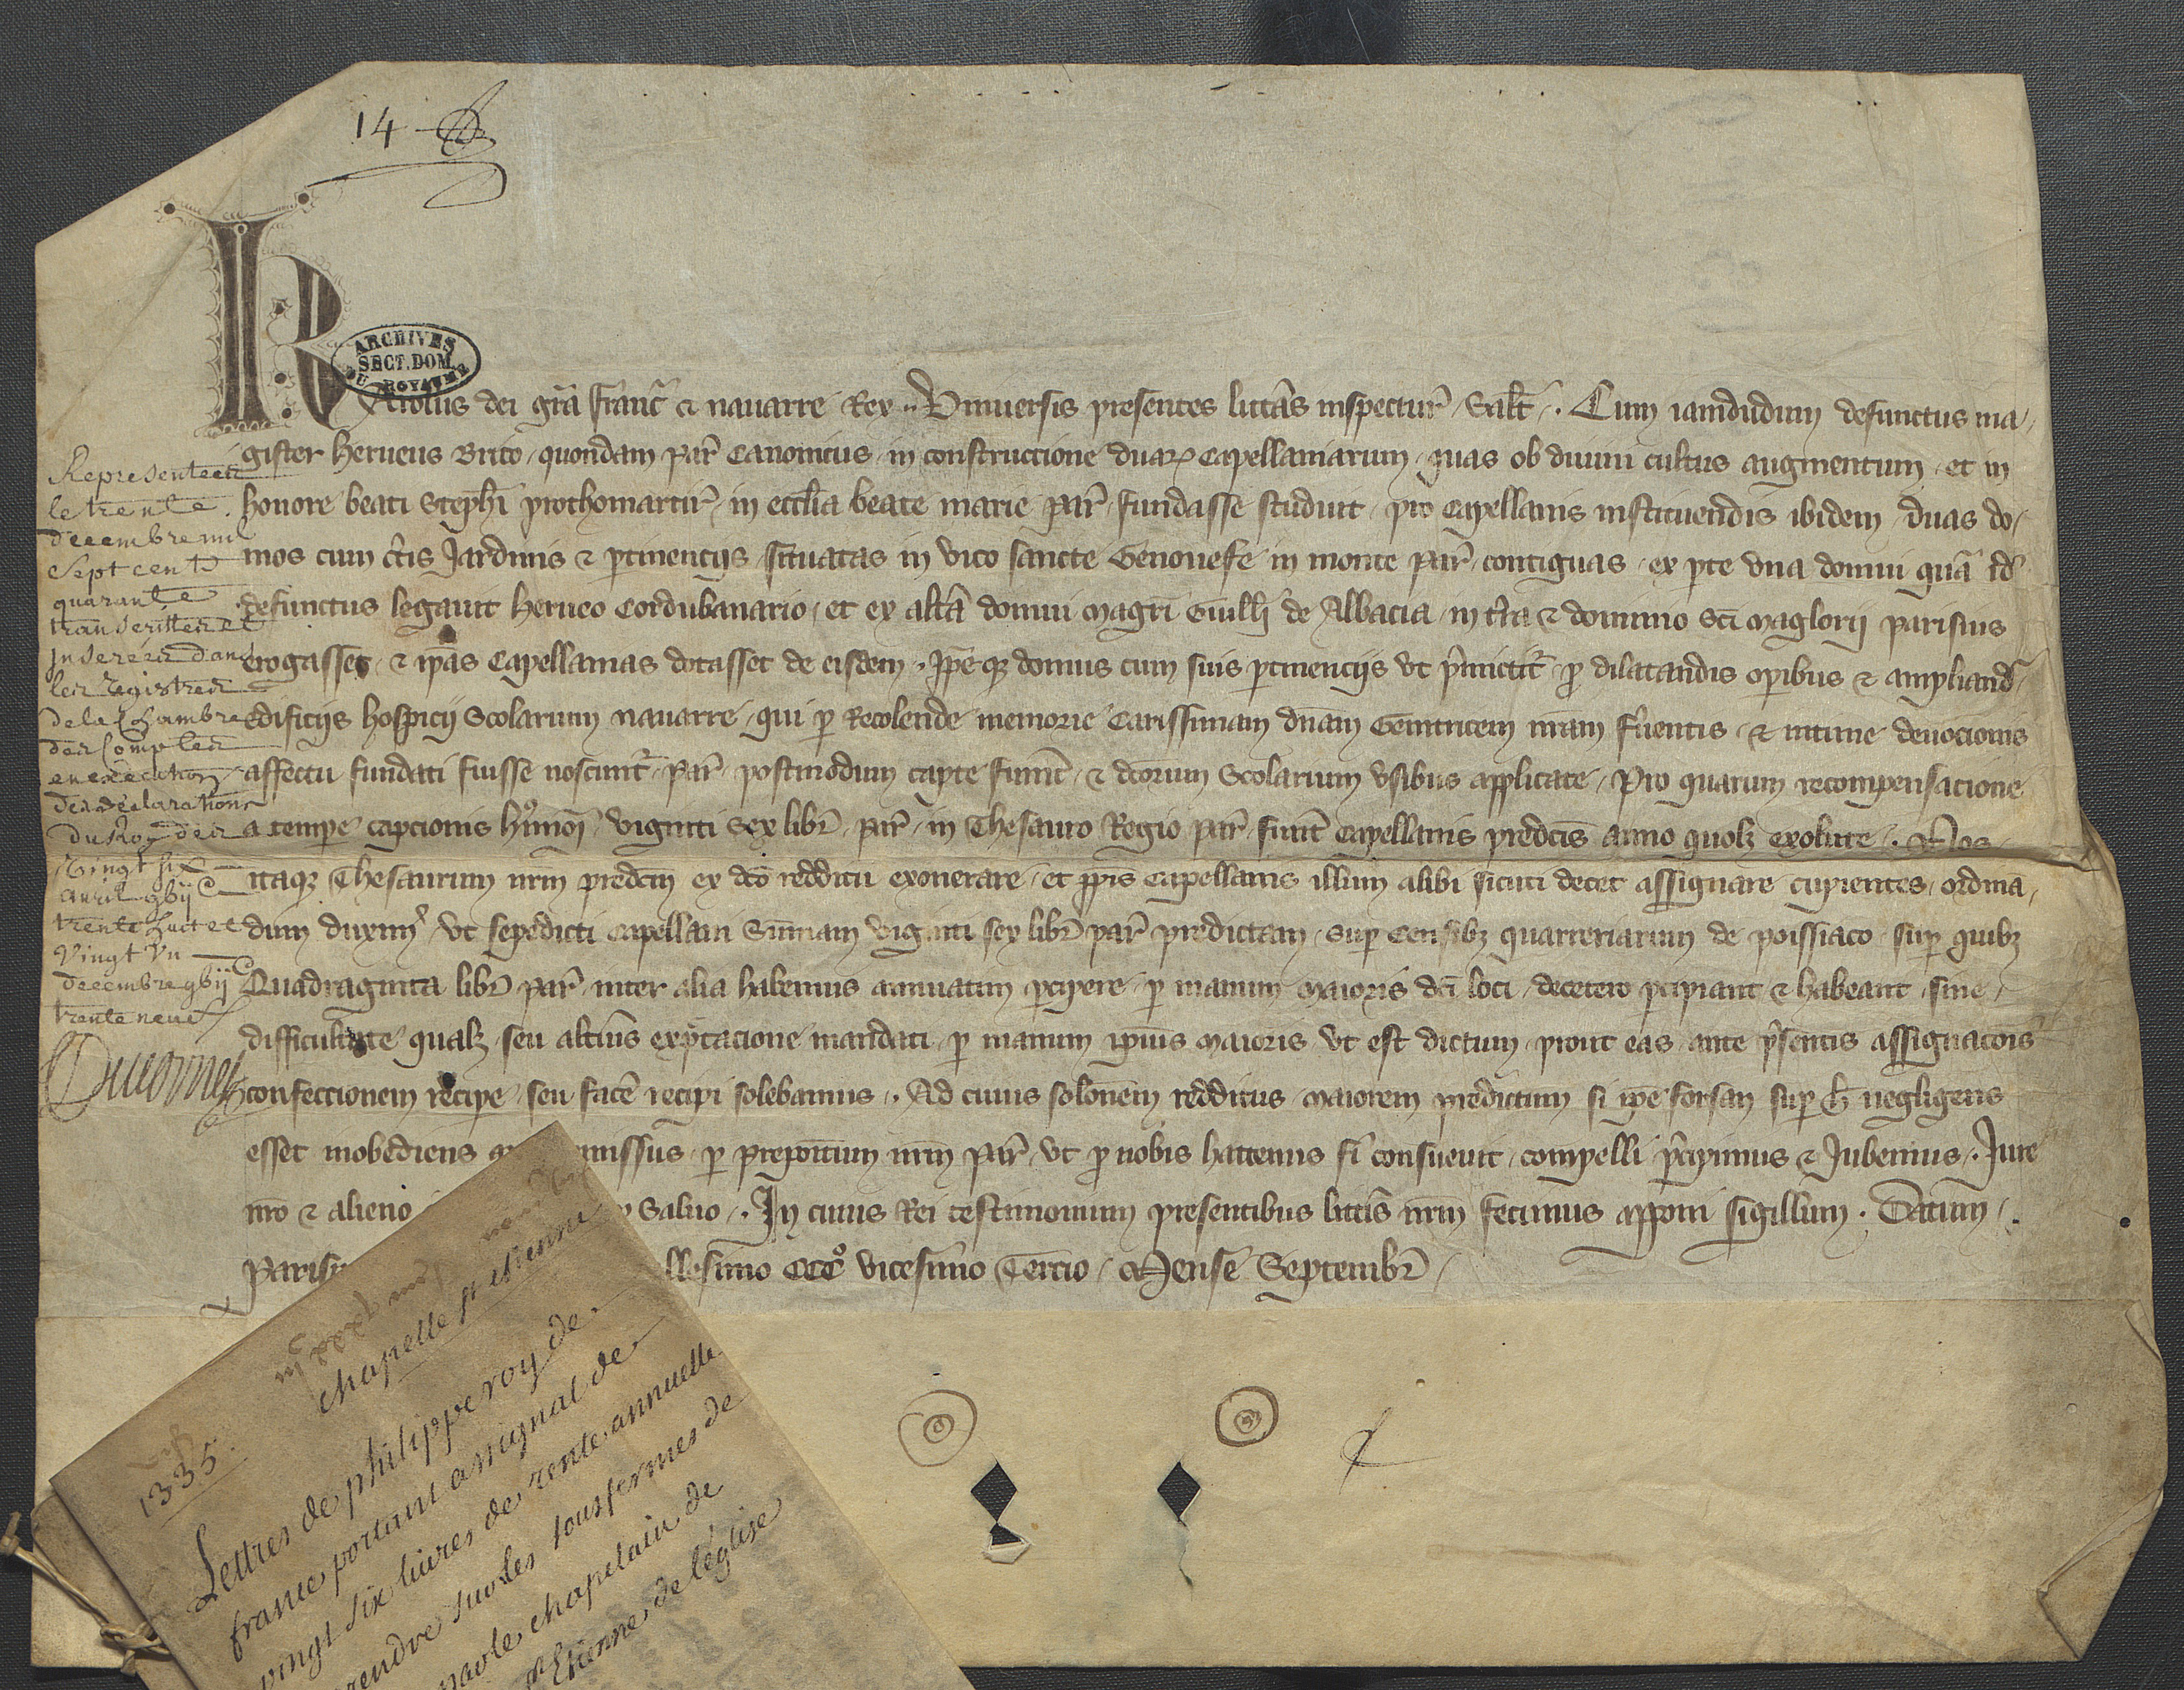 14
ARCHIVES
SECT. DOM.
DU ROYAUME
Karolus dei gr̄a Franc̄ et nauarre Rex Vniuersis presentes litt̄as inspectur̄ Salt̄. Cum iamdudum defunctus ma
gister herueus Brito quondam par̄ Canonicus in constructione duarꝝ Capellaniarum quas ob diuini cultus augmentum et in
honore beati Steph̄i prothomartir̄ in eccl̄ia beate marie par̄ fundasse studuit pro Capellanis instituendis ibidem duas do
mos cum c̄tis Jardinis ⁊ ꝑtinencijs situatas in vico sancte Genouefe in monte par̄ contiguas ex ꝑte vna domui quā id̄
defunctus legauit herueo Cordubanario et ex alt̄a domui magr̄i Guillī de Albacia in t̄ra ⁊ dominio Sc̄i maglorij parisius
erogasset ⁊ ip̄as Capellanias dotasset de eisdem. Ip̄e qꝫ domus cum suis ꝑtinencijs vt p̄mictit̄ ꝓ dilatandis opibus ⁊ ampliand̄
edificijs hospicij Scolarum nauarre qui ꝑ Recolende memorie Carissimam dn̄am Genitricem nr̄am f̄uentis ⁊ intime deuocionis
affectu fundati fuisse noscunt̄ par̄ postmodum capte fuer̄nt ⁊ dc̄orum Scolarium vsibus applicate Pro quarum recompensacione
a tempe capcionis hmōi viginti sex libr̄ par̄ in Thesauro Regio par̄ fuer̄nt Capellanis predc̄is anno quolꝫ exolute. Nos
itaqꝫ Thesaurum nr̄m predc̄m ex dc̄o redditu exonerare et ip̄is Capellanis illum alibi sicuti decet assignare cupientes ordina
dum duxim̄ vt sepedicti capellani Sum̄am viginti sex libr̄ par̄ predictam super Censibꝫ quarreriarum de poissiaco super quibꝫ
Quadraginta libr̄ par̄ inter alia habemus annuatim ꝑcipere ꝑ manum maioris dc̄i loci decetero ꝑcipiant ⁊ habeant sine
difficultate qualꝫ seu alt̄ius exp̄ctacione mandati ꝑ manum ipius maioris vt est dictum prout eas ante p̄sentis assignac̄ois
confectionem recipe seu fac̄e recipi solebamus. Ad cuius solōnem redditus maiorem predictum si ip̄e forsan super h̄ negligens
esset inobediens missus ꝑ prepoītum nr̄m par̄ vt ꝓ nobis hactenus fi consueuit compelli p̄cipimus ⁊ Jubemus. Jure
nr̄o ⁊ alieno Saluo. In cuius Rei testimonium presentibus litt̄is nr̄m fecimus apponi sigillum. Datum
Parisi llesimo CCC° vicesimo Tercio Mense Septembr̄
Representeéz
le trente
decembre mil
Sept cent
quarante
transcrittes et
Inserées dans
les registres
de la Chambre
des Comptes
en execution
des declarations
du Roy des
Vingt six
avril gbijc
trente huit et
Vingt Un
decembre gbijc
trente neuf
Ducornet
chapelle st etienne
1335.
Lettres de philippe roy de
france portant assignal de
vingt six livres de rente annuelle
rendre sur les sous fermes de
par le chapelain de
st Etienne de leglise